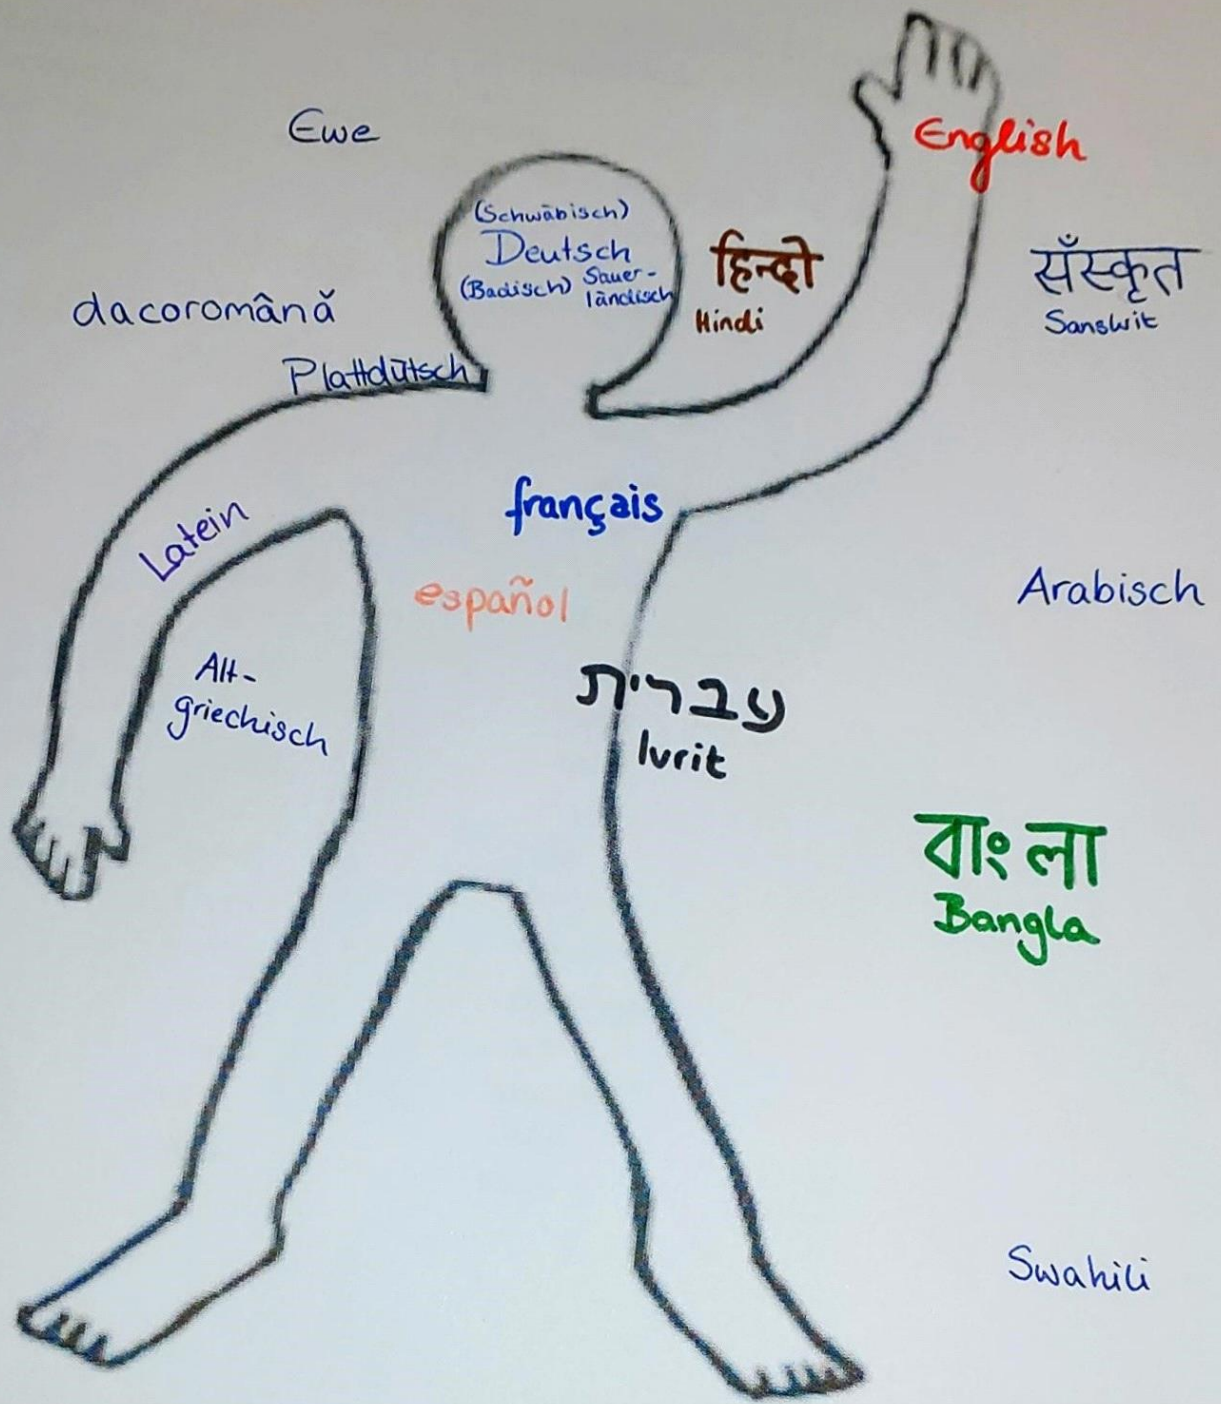 Ewe
English
(Schwäbisch)
Deutsch
(Badisch) Sauer-
ländisch
हिन्दी
Hindi
सँस्कृत
Sanskrit
dacoromână
Plattdütsch
français
Latein
español
Arabisch
Alt-
griechisch
עברית
Ivrit
বাংলা
Bangla
Swahili